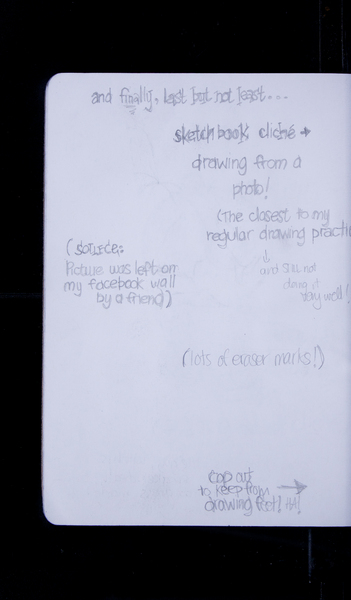 and finally, last but not least...
sketchbook cliché →
drawing from a
photo!
(The closest to my
regular drawing practic
↓
and still not
doing it
very well!
(source:
Picture was left on
my facebook wall
by a friend)
(lots of eraser marks!)
cop out
to keep from →
drawing feet! HA!